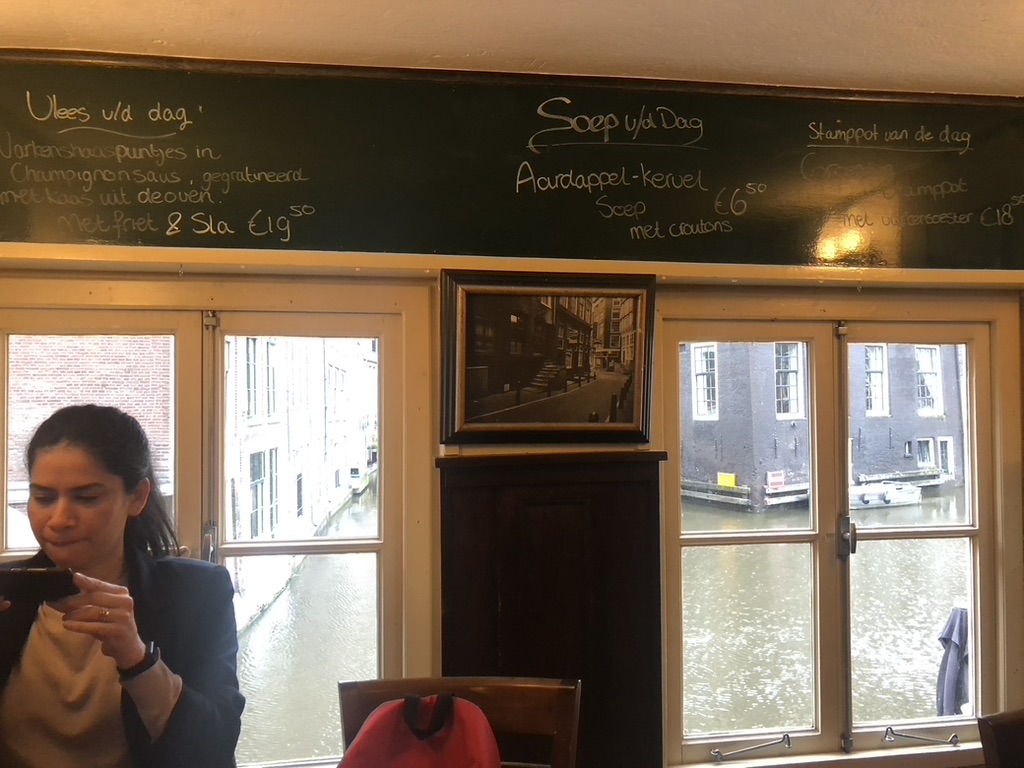 Vlees v/d dag!
Varkenshaaspuntjes in
Champignonsaus, gegratineerd
met kaas uit de oven.
Met friet & Sla €19⁵⁰
Soep v/d Dag
Aardappel-kervel
Soep €6⁵⁰
met croutons
Stamppot van de dag
stamppot
met €18⁵⁰